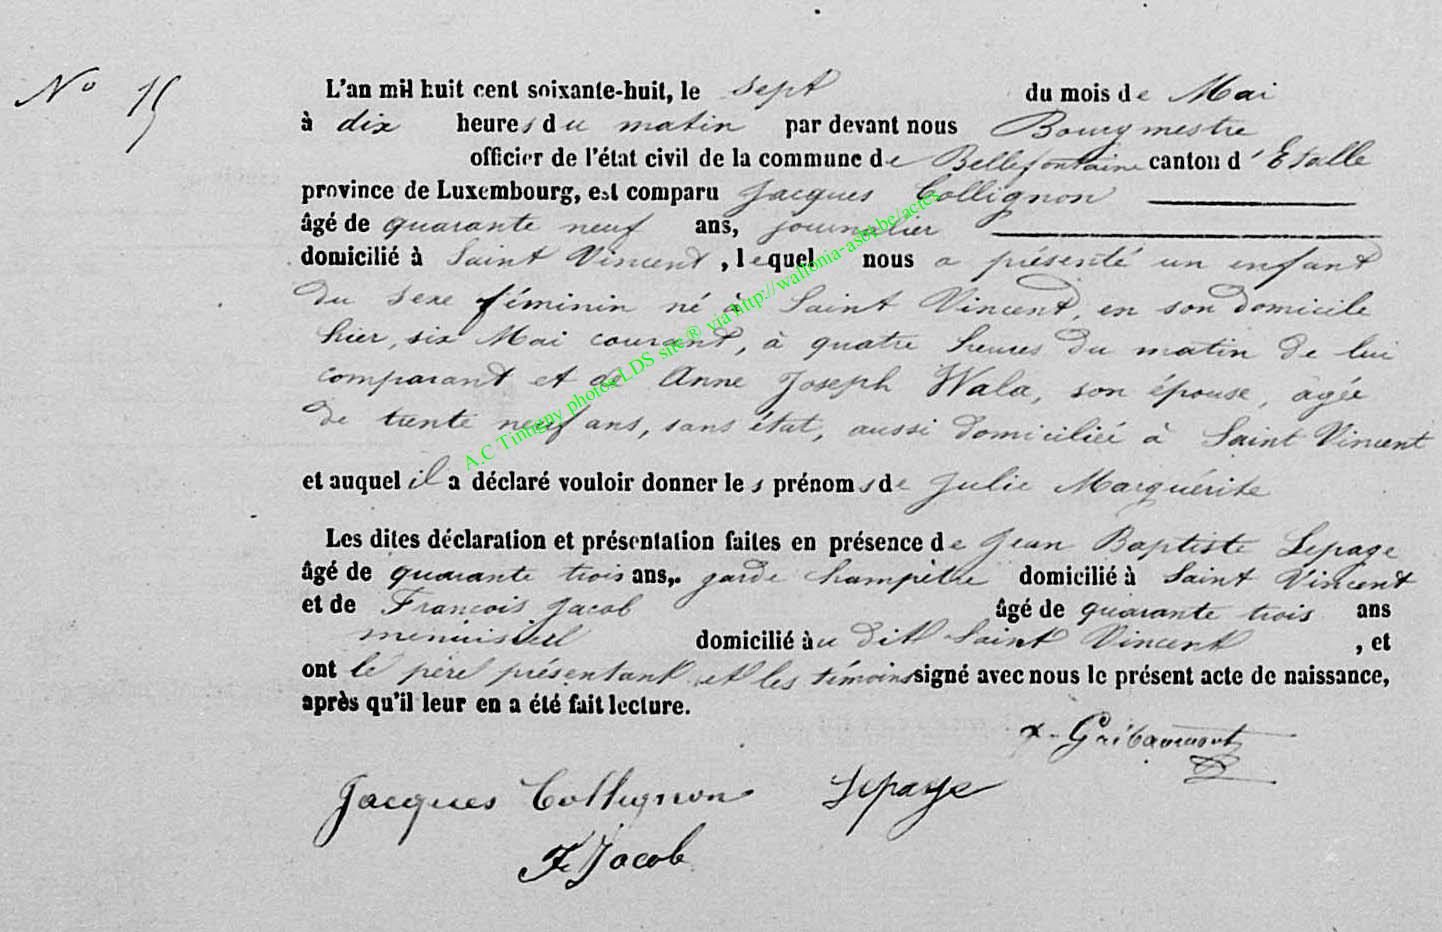 No 15
L'an mil huit cent soixante-huit, le sept du mois de Mai
à dix heures du matin par devant nous Bourgmestre
officier de l'état civil de la commune de Bellefontaine canton d'Etalle
province de Luxembourg, est comparu Jacques Collignon
âgé de quarante neuf ans, journalier
domicilié à Saint Vincent, lequel nous a présenté un enfant
du sexe féminin né à Saint Vincent, en son domicile
hier, six Mai courant, à quatre heures du matin de lui
comparant et de Anne Joseph Wala, son épouse, agée
de trente neuf ans, sans état, aussi domiciliée à Saint Vincent
et auquel il a déclaré vouloir donner les prénoms de Julie Marguérite
Les dites déclaration et présentation faites en présence de Jean Baptiste Lepage
âgé de quarante trois ans, garde champètre domicilié à Saint Vincent
et de François Jacob âgé de quarante trois ans
menuisier domicilié àu dit Saint Vincent, et
ont le père présentant et les témoins signé avec nous le présent acte de naissance,
après qu'il leur en a été fait lecture.
Gribaumont
Jacques Collignon Lepage
F. Jacob
A.C Tintigny photos LDS site® via http://wallonia-asbl.be/actes